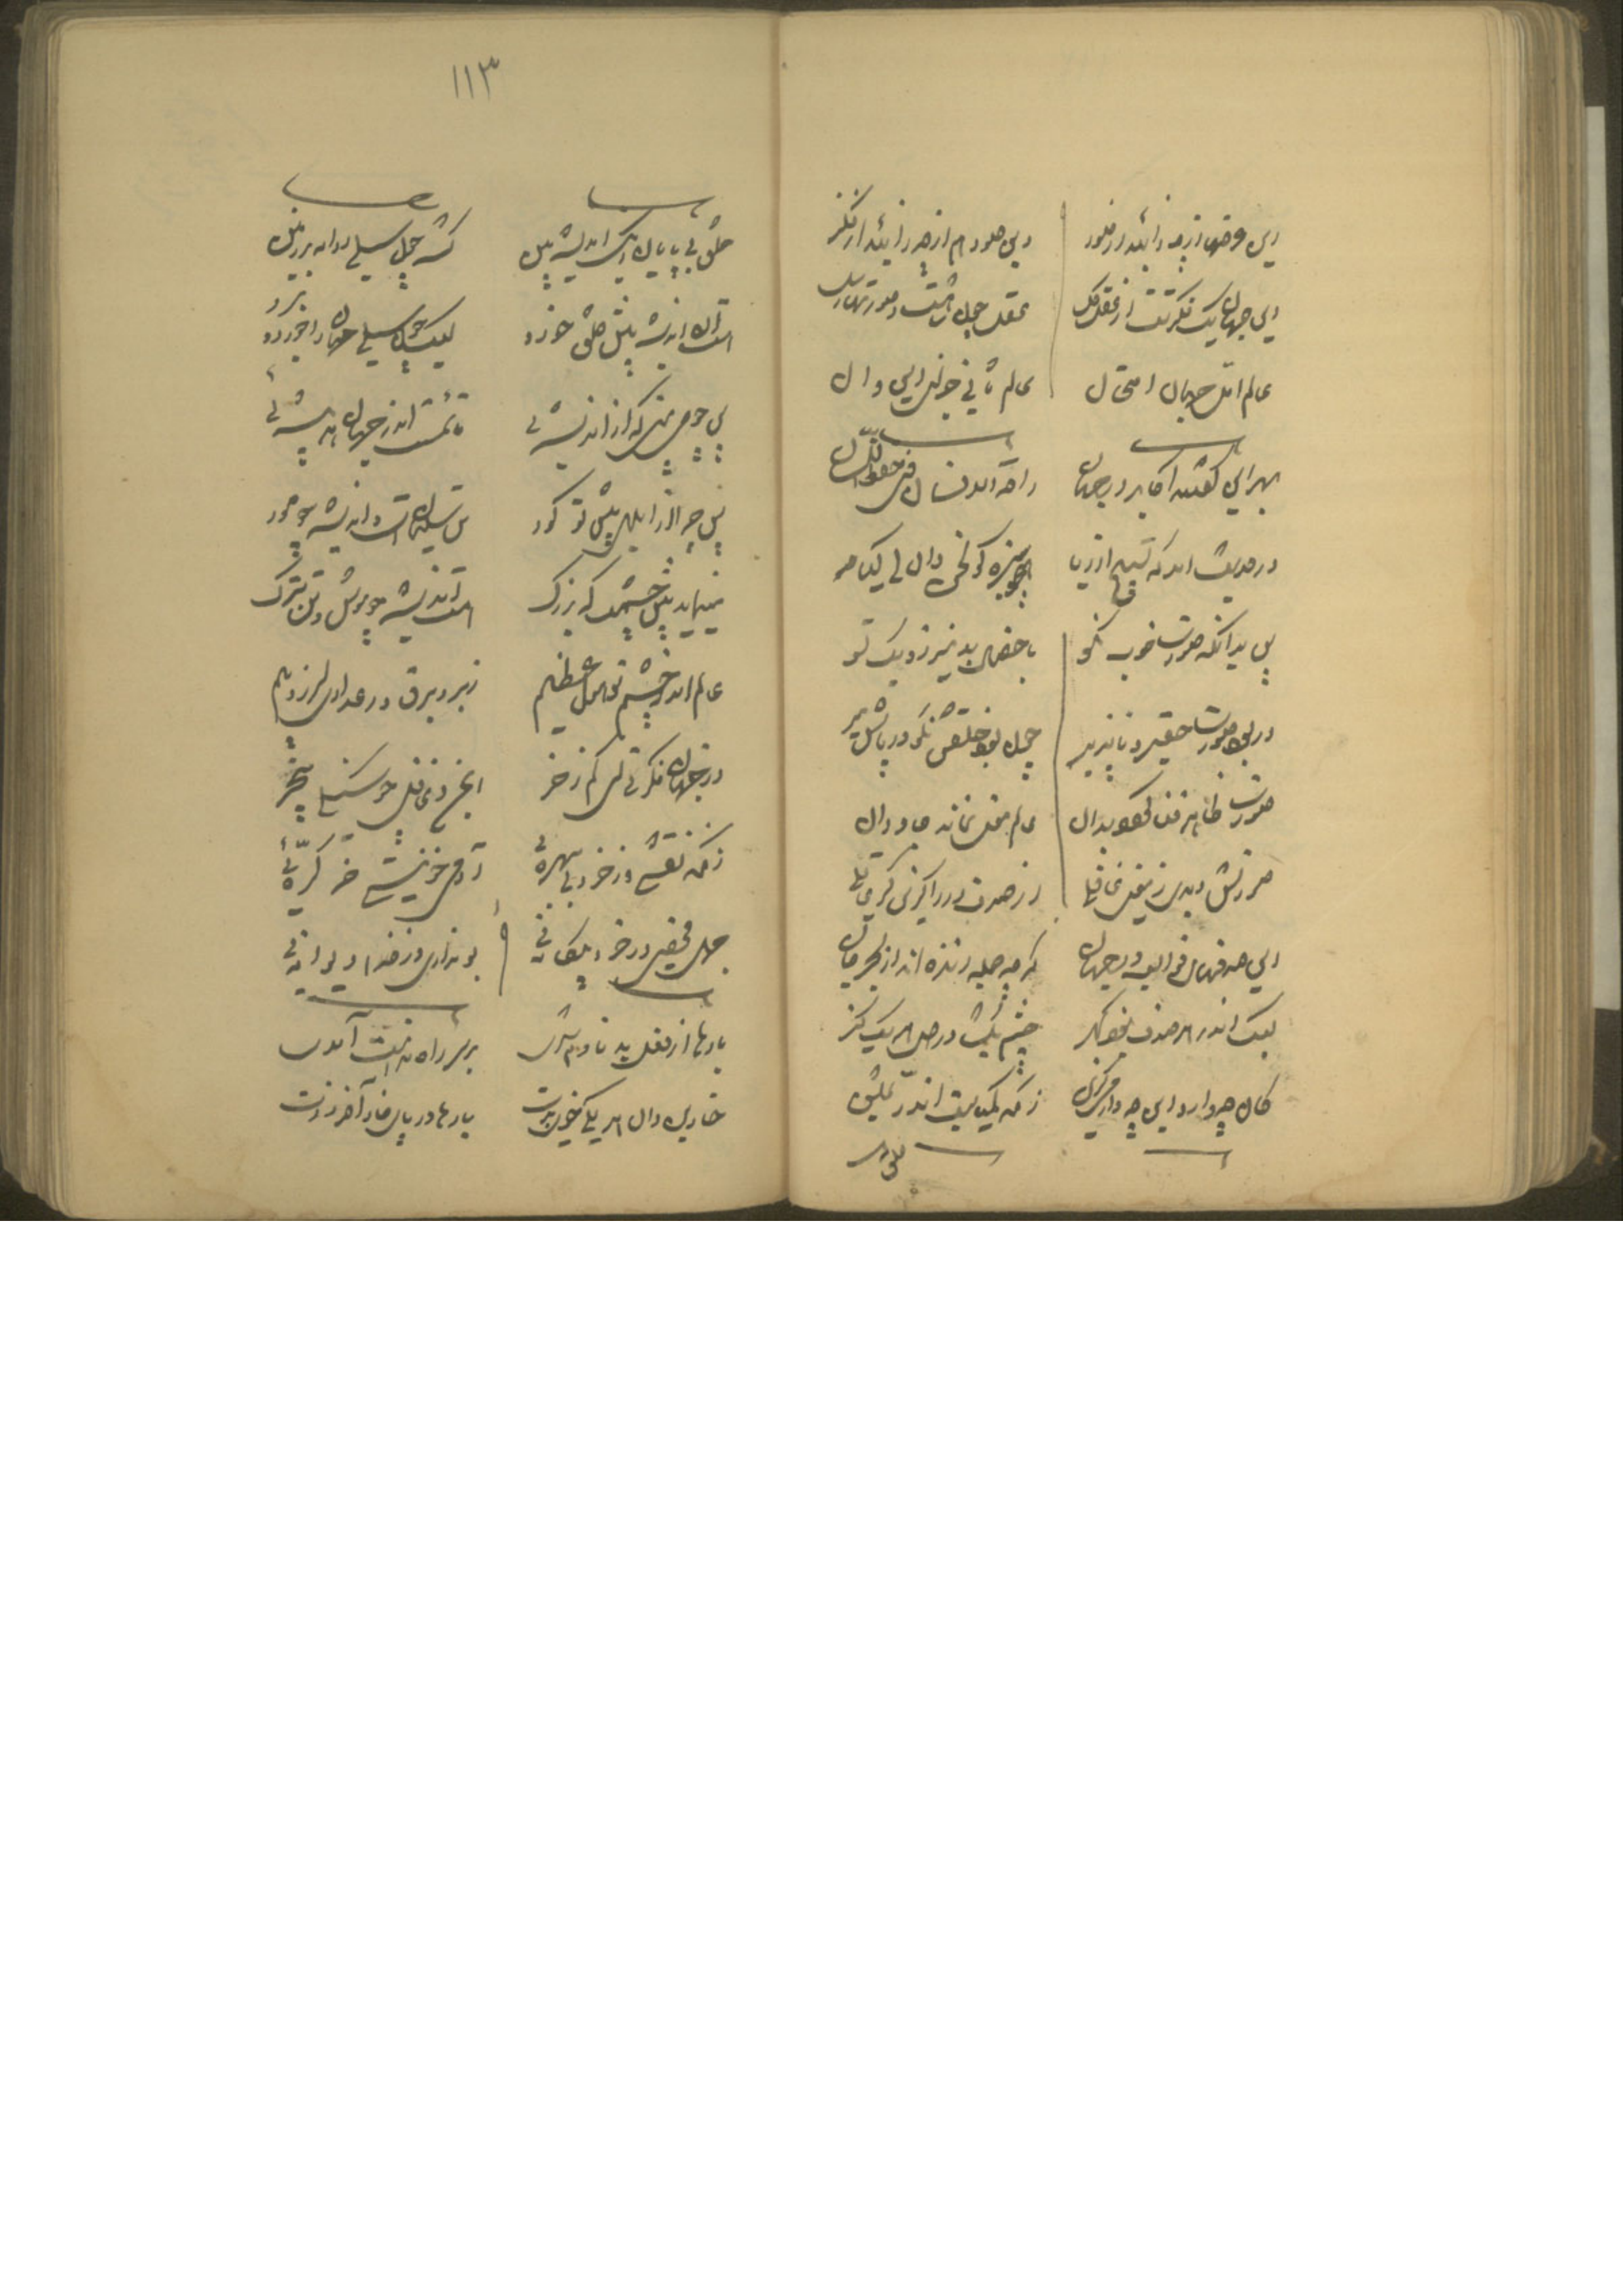 این عرضها از چه زاید از صور
وین صور هم از چه زاید از فکر
این جهان یک فکرتست از عقل کل
عقل چون شاهست و صورتها رسل
عالم اول جهان امتحان
عالم ثانی جزای این و آن
بهر این گفتند اکابر در جهان
راحة الانسان فی حفظ اللسان
در حدیث آمد که تسبیح از ریا
همچو سبزه گولخن دان ای کیا
پس بدانکه صورت خوب نکو
با خصال بد نیرزد یک تسو
ور بود صورت حقیر و ناپذیر
چون بود خلقش نکو در پاش میر
صورت ظاهر فنا گردد بدان
عالم معنی بماند جاودان
صورتش دیدی ز معنی غافلی
از صدف دری گزین گر عاقلی
این صدفهای قوالب در جهان
گرچه جمله زنده اند از بحر جان
لیک اندر هر صدف نبود گهر
چشم بگشا در دل هر یک نگر
کان چه دارد این چه دارد می گزین
زانکه کمیابست اندر ثمین
۱۱۳
خلق بی پایان ز یک اندیشه بین
گشته چون سیلی روانه بر زمین
هست آن اندیشه پیش خلق خرد
لیک چون سیلی جهان را خورد و برد
تا شدست اندر جهان اندیشه
پس چرا از ابلهی پیش تو کور
تن سلیمانست و اندیشه چو مور
مینماید پیش چشمت که بزرگ
هست اندیشه چو موش و تن سترگ
عالم اندر چشم تو هول و عظیم
ز ابر و برق و رعد داری لرز و بیم
در جهان فکرتی ای کم ز خر
ایمن و غافل چو سنگی بیخبر
زانکه نقشی وز خرد بی بهره
آدمی خو نیستی خر کره
جهل محضی وز خرد بیگانه
بو نداری از خدا دیوانه
بارها از فعل بد نادم شدی
بر سر راه ندامت آمدی
خاربن دان هر یکی خوی بدت
بارها در پای خار آخر زدت